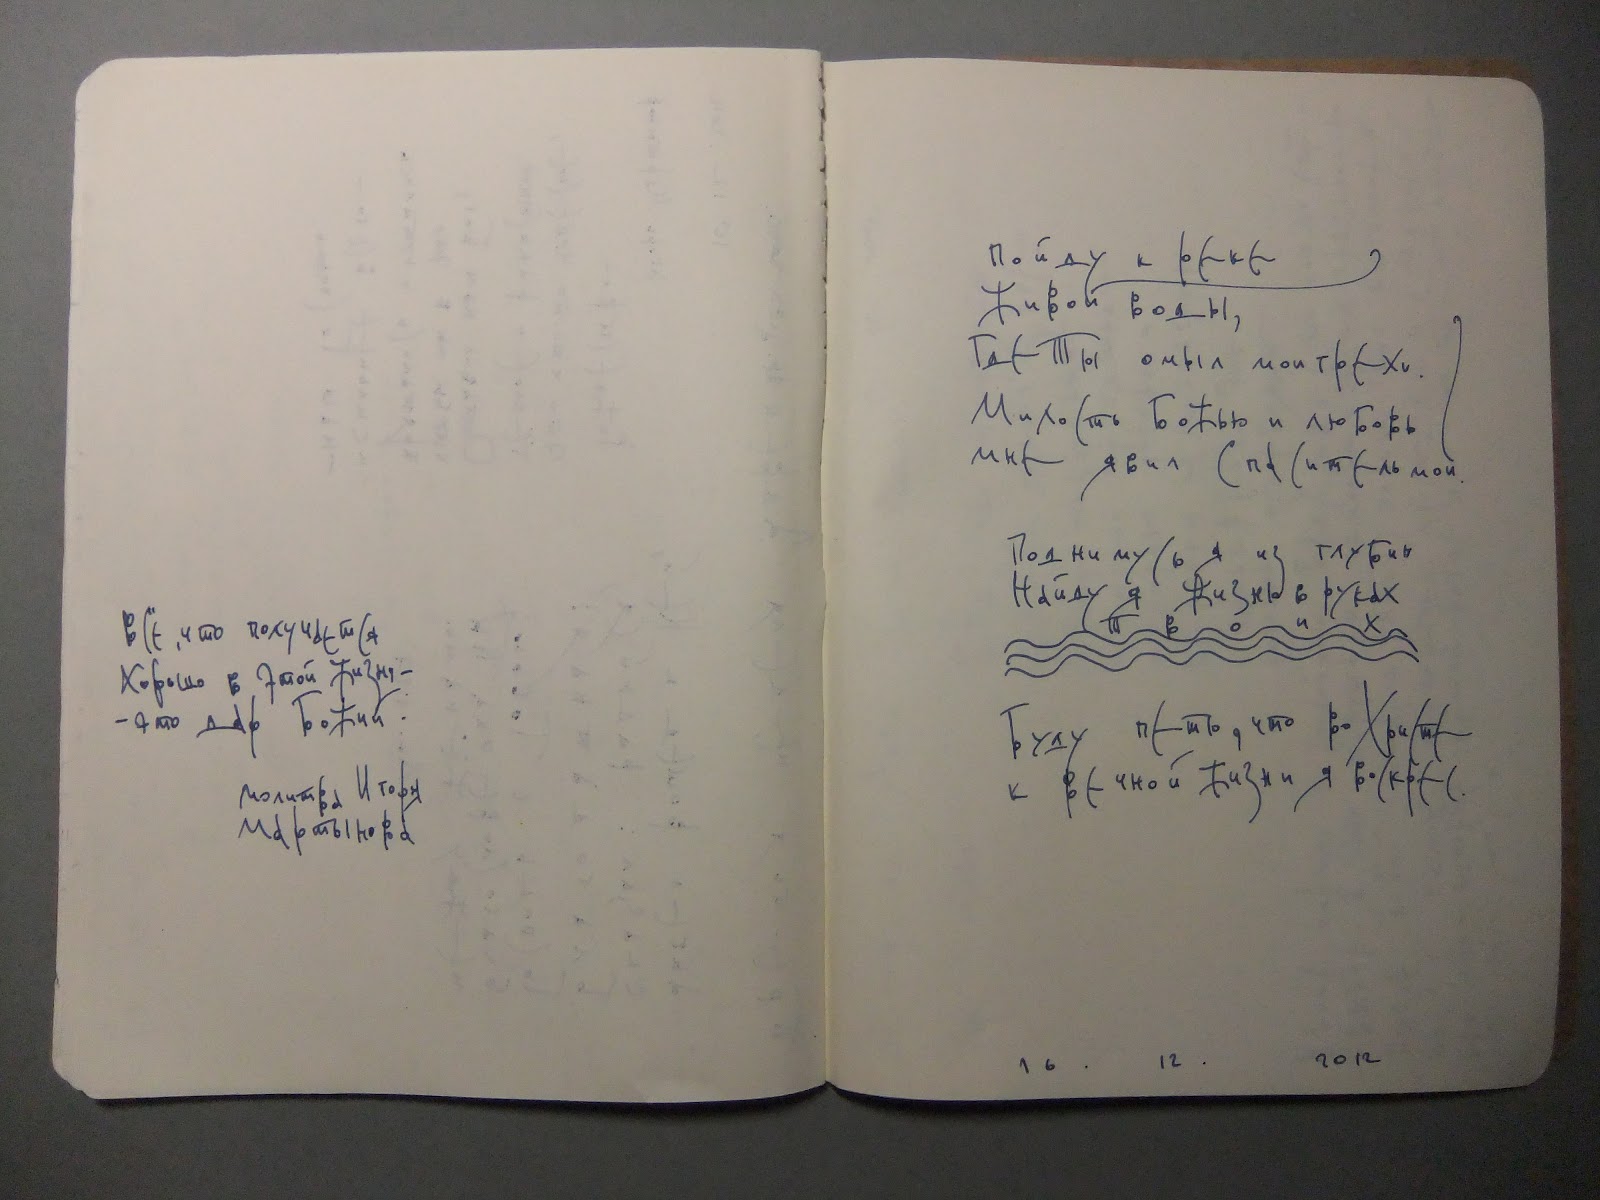 всё, что получается
хорошо в этой жизни-
- это дар Божий.
молитва Игоря
Мартынова
Пойду к реке
Живой воды,
Где Ты омыл мои грехи.
Милость Божью и любовь
мне явил Спаситель мой.
Поднимусь я из глубин
Найду я Жизнь в руках
твоих
Буду петь, что во Христе
к вечной Жизни я воскрес.
16. 12. 2012